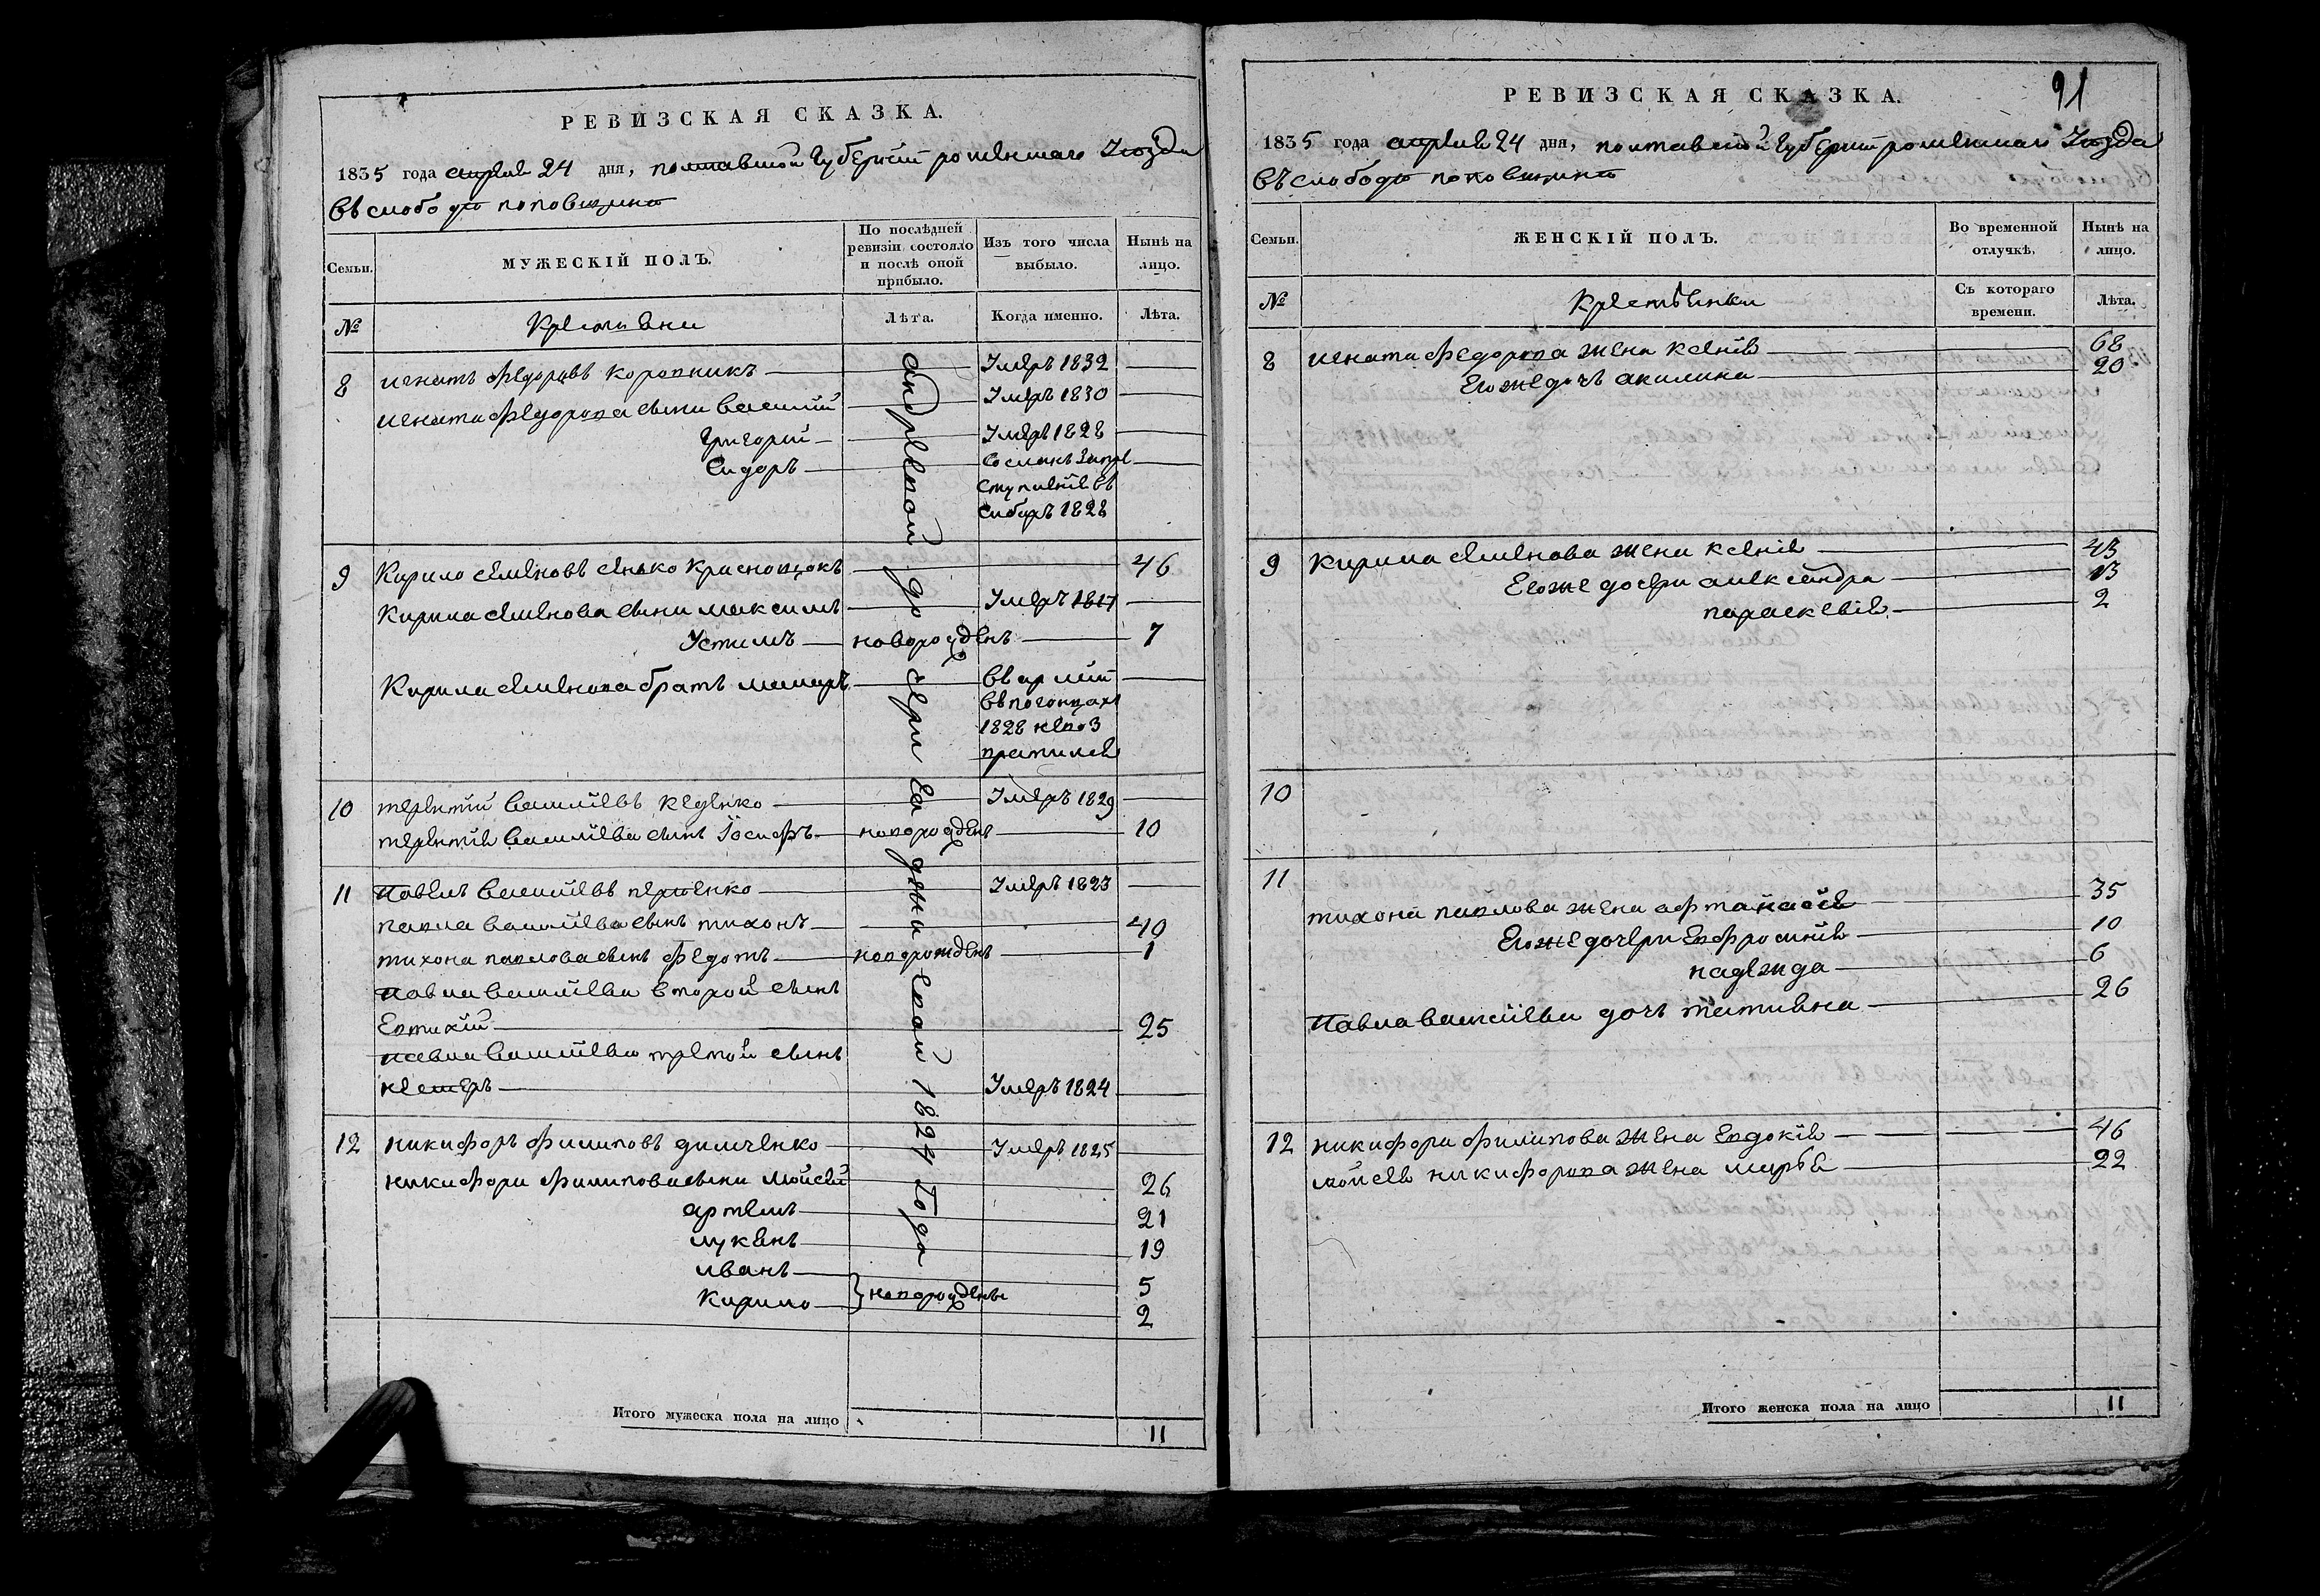 РЕВИЗСКАЯ СКАЗКА.
1835 года апреля 24 дня, полтавской Губернии роменскаго Уезда
въ слободѣ поповщинѣ
Семьи.
МУЖЕСКІЙ ПОЛЪ.
По послѣдней ревизіи состояло и послѣ оной прибыло.
Изъ того числа выбыло.
Нынѣ на лицо.
№
Крестьяни
Лѣта.
Когда именно.
Лѣта.
8 игнатъ федоровъ коровникъ Умеръ 1832
игната федорова сыни василий Умеръ 1830
Григорий Умеръ 1828
Сидоръ Сосланъ Запре
ступление въ
сибиръ 1828
9 Кирило семеновъ сенько Краснощокъ 46
Кирила семенова сыни максимъ Умеръ 1817
Устимъ новорожденъ 7
Кирила семенова братъ макаръ въ армии
въ погонцахъ
1828 невоз
вратился
10 терентий василиевъ кеденко Умеръ 1829
терентия василиева сынъ Іосифъ новорожденъ 10
11 павелъ василиевъ Умеръ 1823
павла василиева сынъ тихонъ 40
тихона павлова сынъ федотъ новорожденъ 1
павла василиева второй сынъ
Евтихий 25
павла василиева третий сынъ
нестеръ Умеръ 1824
12 никифоръ филиповъ димченко Умеръ 1825
никифора филипова сыни мойсей 26
артемъ 21
лукянъ 19
иванъ 5
Кирило } новорожденъ 2
Итого мужеска пола на лицо 11
1824 Года
91
РЕВИЗСКАЯ СКАЗКА.
1835 года апреля 24 дня, полтавской Губернии роменскаго Уезда
въ слободѣ поповщинѣ
Семьи.
ЖЕНСКІЙ ПОЛЪ.
Во временной отлучкѣ,
Нынѣ на лицо.
№
Крестьянки
Съ котораго времени.
Лѣта.
8 игната федорова жена ксения 68
Его же дочъ акилина 20
9 Кирила семенова жена ксения 43
Его же дочери александра 13
параскевия 2
10
11
тихона павлова жена афтанасия 35
Его же дочери Евфросиния 10
надежда 6
павла василиева дочъ татияна 26
12 никифора филипова жена Евдокия 46
мойсея никифорова жена марья 22
Итого женска пола на лицо 11